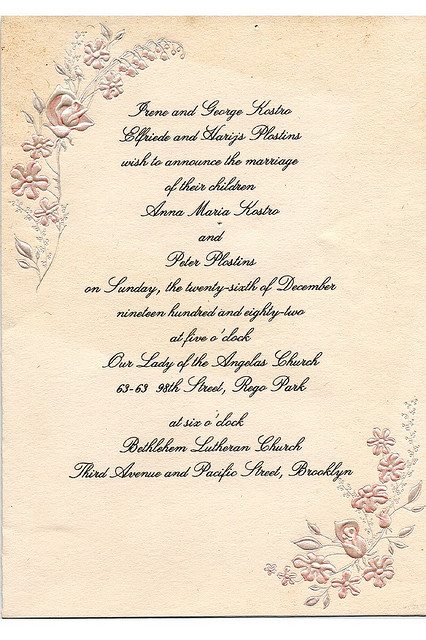 Irene and George Kostro
Elfriede and Harijs Plostins
wish to announce the marriage
of their children
Anna Maria Kostro
and
Peter Plostins
on Sunday, the twenty-sixth of December
nineteen hundred and eighty-two
at five o'clock
Our Lady of the Angelas Church
63-63 98th Street, Rego Park
at six o'clock
Bethlehem Lutheran Church
Third Avenue and Pacific Street, Brooklyn